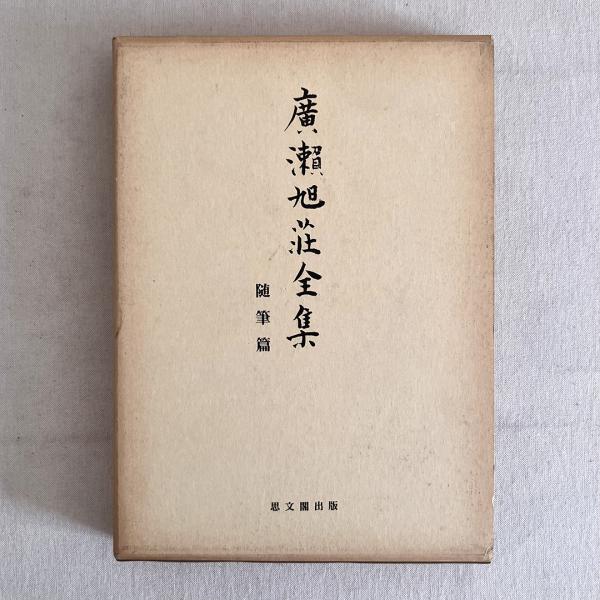 廣瀨旭莊全集
随筆篇
思文閣出版